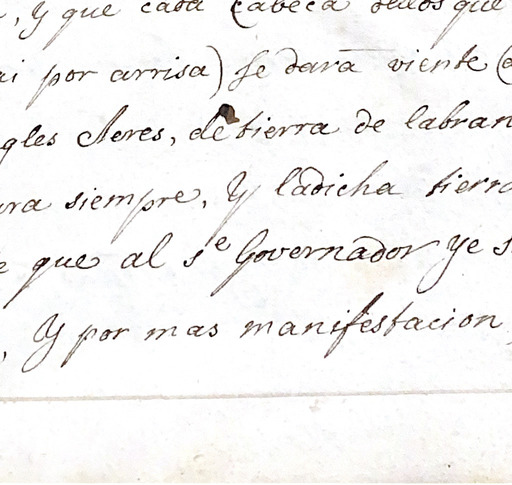 , y que cada Cabeca dellos que
ai por arrisa) se dará viente (
gles Acres, de tierra de labran
ara siempre, Y ladicha tierra
e que al sᵉ Governador ye s
, Y por mas manifestacion